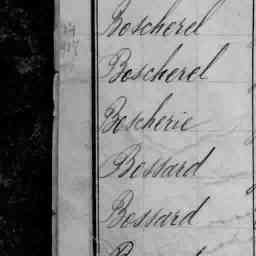 Boscherel
Boscherel
Boscherie
Bossard
Bossard